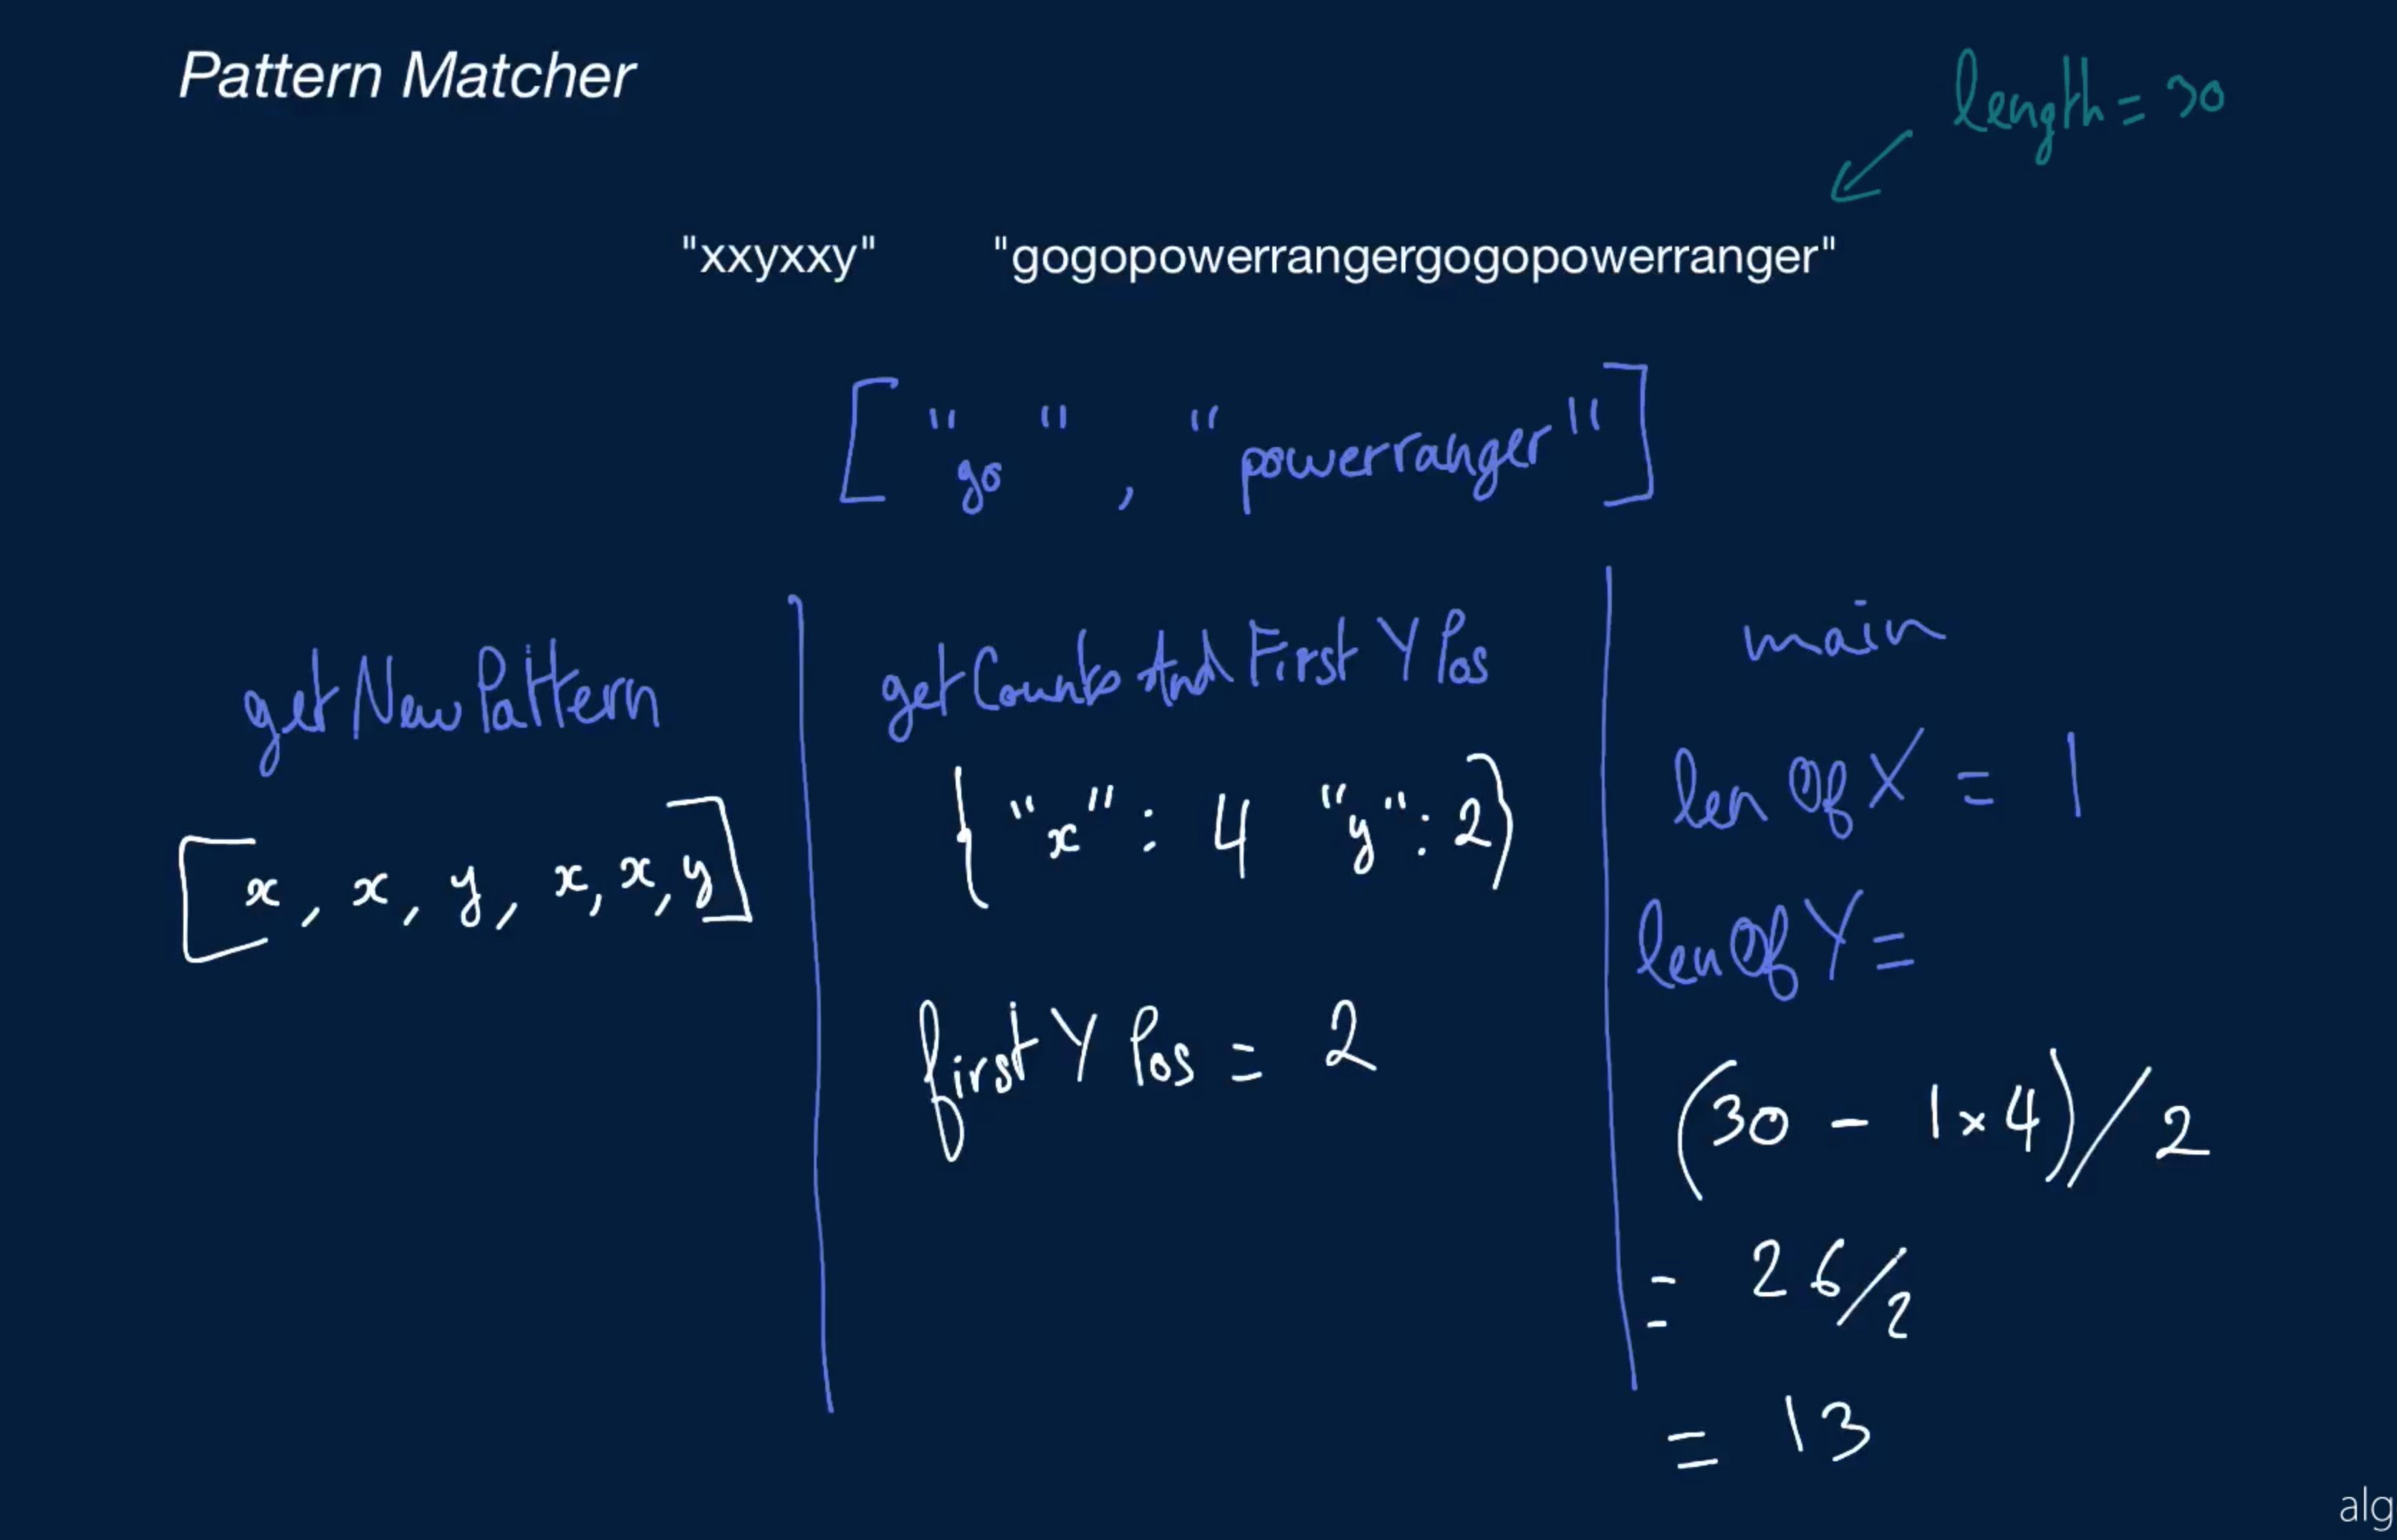 Pattern Matcher
length = 30
"xxyxxy" "gogopowerrangergogopowerranger"
["go", "powerranger"]
getNewPattern
[x, x, y, x, x, y]
getCountsAndFirstYPos
{"x": 4 "y": 2}
firstYPos = 2
main
lenOfX = 1
lenOfY =
(30 - 1x4)/2
= 26/2
= 13
alg